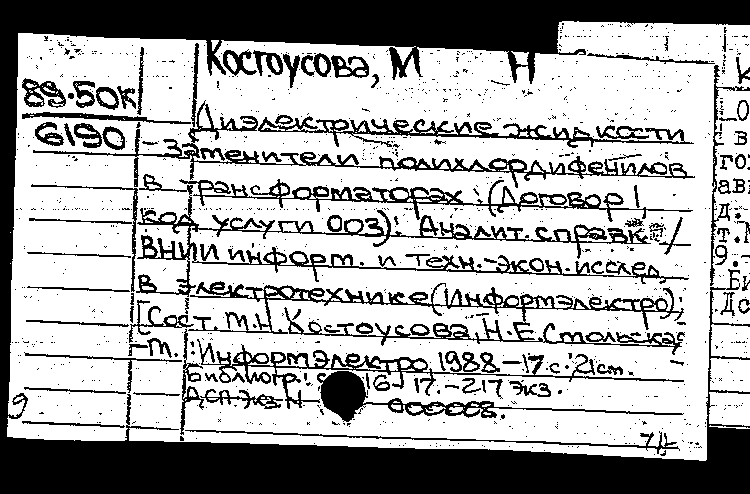 Костоусова, М Н
89-50К
6190
Диэлектрические жидкости
- заменители полихлордифенилов
в трансформаторах : (Договор 1,
код услуги 003): Аналит. справка /
ВНИИ информ. и техн.-экон. исслед.
в электротехнике (Информэлектро);
[Сост. М.Н. Костоусова, Н.Е. Стольская
-М. : Информэлектро, 1988. - 17 с.; 21 см. -
Библиогр.: с. 16-17. - 217 экз.
ДСП. Экз. N 000008.
9